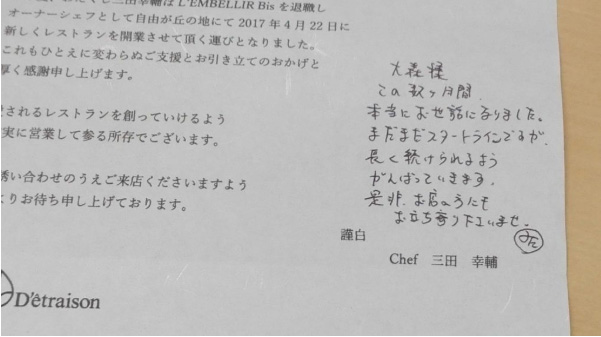 三田幸輔はL'EMBELLIR Bisを退職し
オーナーシェフとして自由が丘の地にて2017年4月22日に
新しくレストランを開業させて頂く運びとなりました。
これもひとえに変わらぬご支援とお引き立てのおかげと
厚く感謝申し上げます。
されるレストランを創っていけるよう
実に営業して参る所存でございます。
誘い合わせのうえご来店くださいますよう
よりお待ち申し上げております。
大森様
この数ヶ月間、
本当にお世話になりました。
まだまだスタートラインですが、
長く続けられるよう
がんばっていきます。
是非、お店のうにも
お立ち寄り下さいませ。
謹白
Chef 三田 幸輔
D'êtraison